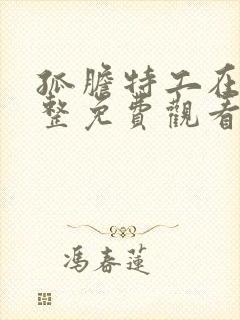 孤膽特工在
整免費觀看
馮春蓮